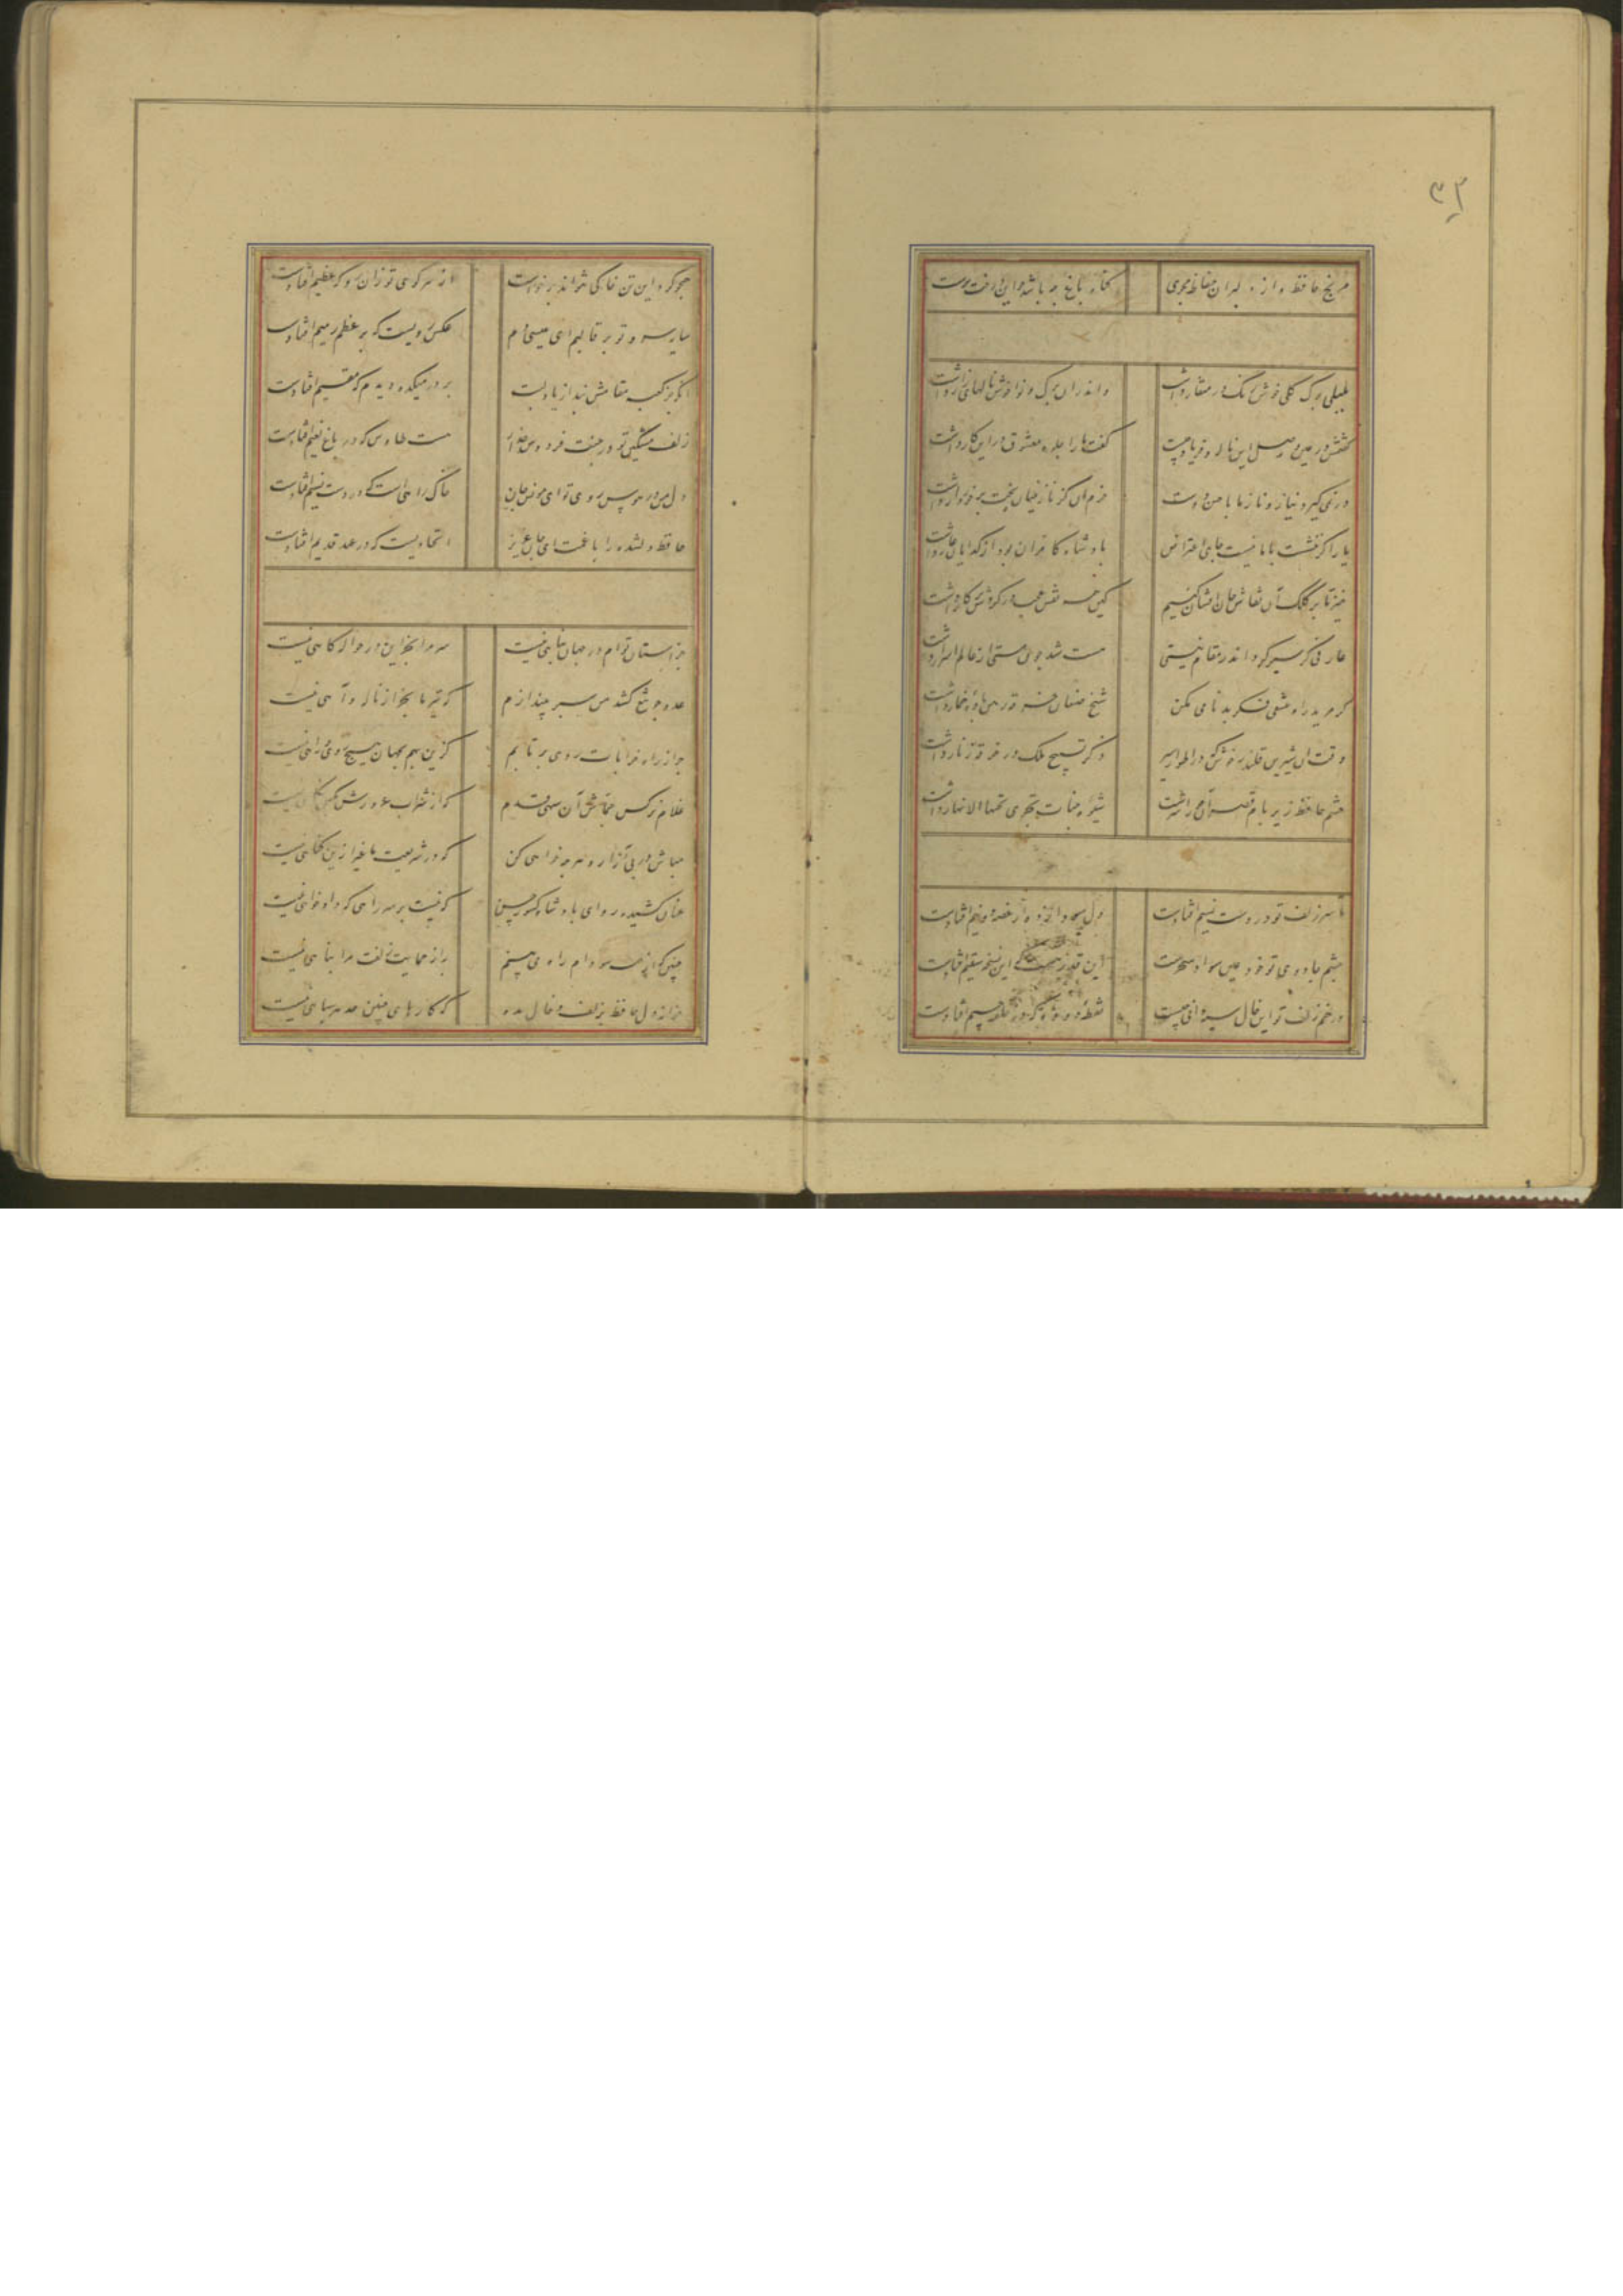 ۳۲
مرنج حافظ و از دلبران حفاظ مجوی
گناه باغ چه باشد چو این درخت نرست
بلبلی برگ گلی خوش رنگ در منقار داشت
و اندران برگ و نوا خوش نالهای زار داشت
گفتمش در عین وصل این ناله و فریاد چیست
گفت ما را جلوه معشوق در این کار داشت
در نمی گیرد نیاز و ناز ما با حسن دوست
خرم آن کز نازنینان بخت برخوردار داشت
یار اگر ننشست با ما نیست جای اعتراض
پادشاه کامران بود از گدایان عار داشت
خیز تا بر کلک آن نقاش جان افشان کنیم
کین همه نقش عجب در گردش پرگار داشت
عارفی کو سیر کرد اندر مقام نیستی
مست شد چون مستی از عالم اسرار داشت
گر مرید راه عشقی فکر بدنامی مکن
شیخ صنعان خرقه رهن خانه خمار داشت
وقت آن شیرین قلندر خوش که در اطوار سیر
ذکر تسبیح ملک در خرقه زنار داشت
چشم حافظ زیر بام قصر آن حوری سرشت
شیوه جنات تجری تحتها الانهار داشت
تا سر زلف تو در دست نسیم افتادست
دل سودا زده از غصه دو نیم افتادست
چشم جادوی تو خود عین سواد سحرست
این قدر هست که این نسخه سقیم افتادست
در خم زلف تو این خال سیه دانی چیست
نقطه دوده که در حلقه جیم افتادست
همچو گرد این تن خاکی نتواند برخواست
از سر کوی تو زان رو که عظیم افتادست
سایه سرو تو بر قالبم ای عیسی دم
عکس رویست که بر عظم رمیم افتادست
آنکه جز کعبه مقامش نبد از یاد لبت
بر در میکده دیدم که مقیم افتادست
زلف مشکین تو در جنت فردوس عذار
مست طاوس که در باغ نعیم افتادست
دل من در هوس روی تو ای مونس جان
خاک راهی است که در دست نسیم افتادست
حافظ دلشده را با غمت ای جان عزیز
اتحادیست که در عهد قدیم افتادست
جز آستان توام در جهان پناهی نیست
سر مرا بجز این در حواله گاهی نیست
عدو چو تیغ کشد من سپر بیندازم
که تیر ما بجز از ناله و آهی نیست
چرا ز راه خرابات روی برتابم
کزین بهم بجهان هیچ روی و راهی نیست
غلام نرگس جماش آن سهی قدم
که از شراب غرورش بکس نگاهی نیست
مباش در پی آزار و هر چه خواهی کن
که در شریعت ما غیر ازین گناهی نیست
عنان کشیده رو ای پادشاه کشور حسن
که نیست بر سر راهی که دادخواهی نیست
چنین که از همه سو دام راه می بینم
به از حمایت زلفت مرا پناهی نیست
خزانه دل حافظ بزلف و خال مده
که کارهای چنین حد هر سیاهی نیست